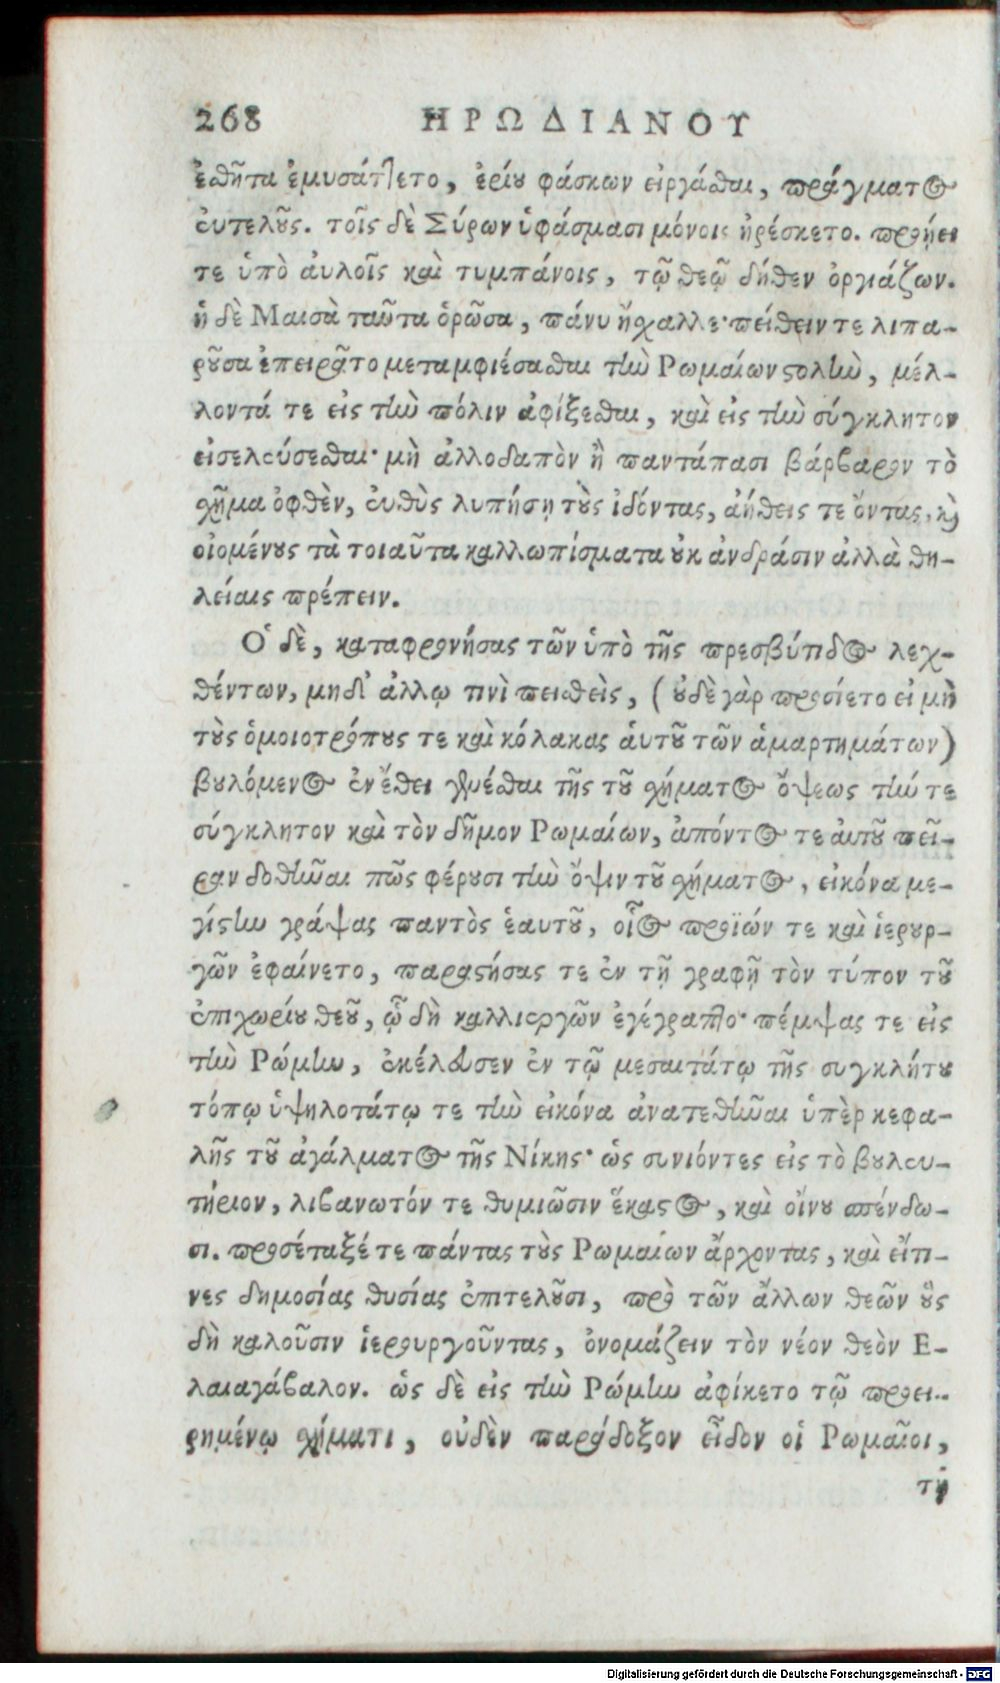 268 ΗΡΩΔΙΑΝΟΥ
ἐσθῆτα ἐμυσάττετο, ἐρίου φάσκων εἰργάσθαι, πράγματος
εὐτελοῦς. τοῖς δὲ Σύρων ὑφάσμασι μόνοις ἠρέσκετο. προῄει
τε ὑπὸ αὐλοῖς καὶ τυμπάνοις, τῷ θεῷ δῆθεν ὀργιάζων.
ἡ δὲ Μαισὰ ταῦτα ὁρῶσα, πάνυ ἤσχαλλε· πείθειν τε λιπα-
ροῦσα ἐπειρᾶτο μεταμφιέσασθαι τὴν Ῥωμαίων στολὴν, μέλ-
λοντά τε εἰς τὴν πόλιν ἀφίξεσθαι, καὶ εἰς τὴν σύγκλητον
εἰσελεύσεσθαι· μὴ ἀλλοδαπὸν ἢ παντάπασι βάρβαρον τὸ
σχῆμα ὀφθὲν, εὐθὺς λυπήσῃ τοὺς ἰδόντας, ἀήθεις τε ὄντας, καὶ
οἰομένους τὰ τοιαῦτα καλλωπίσματα οὐκ ἀνδράσιν ἀλλὰ θη-
λείαις πρέπειν.
Ὁ δὲ, καταφρονήσας τῶν ὑπὸ τῆς πρεσβύτιδος λεχ-
θέντων, μηδ' ἄλλῳ τινὶ πεισθεὶς, (οὐδὲ γὰρ προσίετο εἰ μὴ
τοὺς ὁμοιοτρόπους τε καὶ κόλακας αὑτοῦ τῶν ἁμαρτημάτων)
βουλόμενος ἐν ἔθει γενέσθαι τῆς τοῦ σχήματος ὄψεως τήν τε
σύγκλητον καὶ τὸν δῆμον Ῥωμαίων, ἀπόντος τε αὐτοῦ πεῖ-
ραν δοθῆναι πῶς φέρουσι τὴν ὄψιν τοῦ σχήματος, εἰκόνα με-
γίστην γράψας παντὸς ἑαυτοῦ, οἷος προϊών τε καὶ ἱερουρ-
γῶν ἐφαίνετο, παραστήσας τε ἐν τῇ γραφῇ τὸν τύπον τοῦ
ἐπιχωρίου θεοῦ, ᾧ δὴ καλλιεργῶν ἐγέγραπτο· πέμψας τε εἰς
τὴν Ῥώμην, ἐκέλευσεν ἐν τῷ μεσαιτάτῳ τῆς συγκλήτου
τόπῳ ὑψηλοτάτῳ τε τὴν εἰκόνα ἀνατεθῆναι ὑπὲρ κεφα-
λῆς τοῦ ἀγάλματος τῆς Νίκης· ὡς συνιόντες εἰς τὸ βουλευ-
τήριον, λιβανωτόν τε θυμιῶσιν ἕκαστος, καὶ οἴνου σπένδω-
σι. προσέταξέ τε πάντας τοὺς Ῥωμαίων ἄρχοντας, καὶ εἴτι-
νες δημοσίας θυσίας ἐπιτελοῦσι, πρὸ τῶν ἄλλων θεῶν οὓς
δὴ καλοῦσιν ἱερουργοῦντας, ὀνομάζειν τὸν νέον θεὸν Ε-
λαιαγάβαλον. ὡς δὲ εἰς τὴν Ῥώμην ἀφίκετο τῷ προει-
ρημένῳ σχήματι, οὐδὲν παράδοξον εἶδον οἱ Ῥωμαῖοι,
τῇ
Digitalisierung gefördert durch die Deutsche Forschungsgemeinschaft - DFG